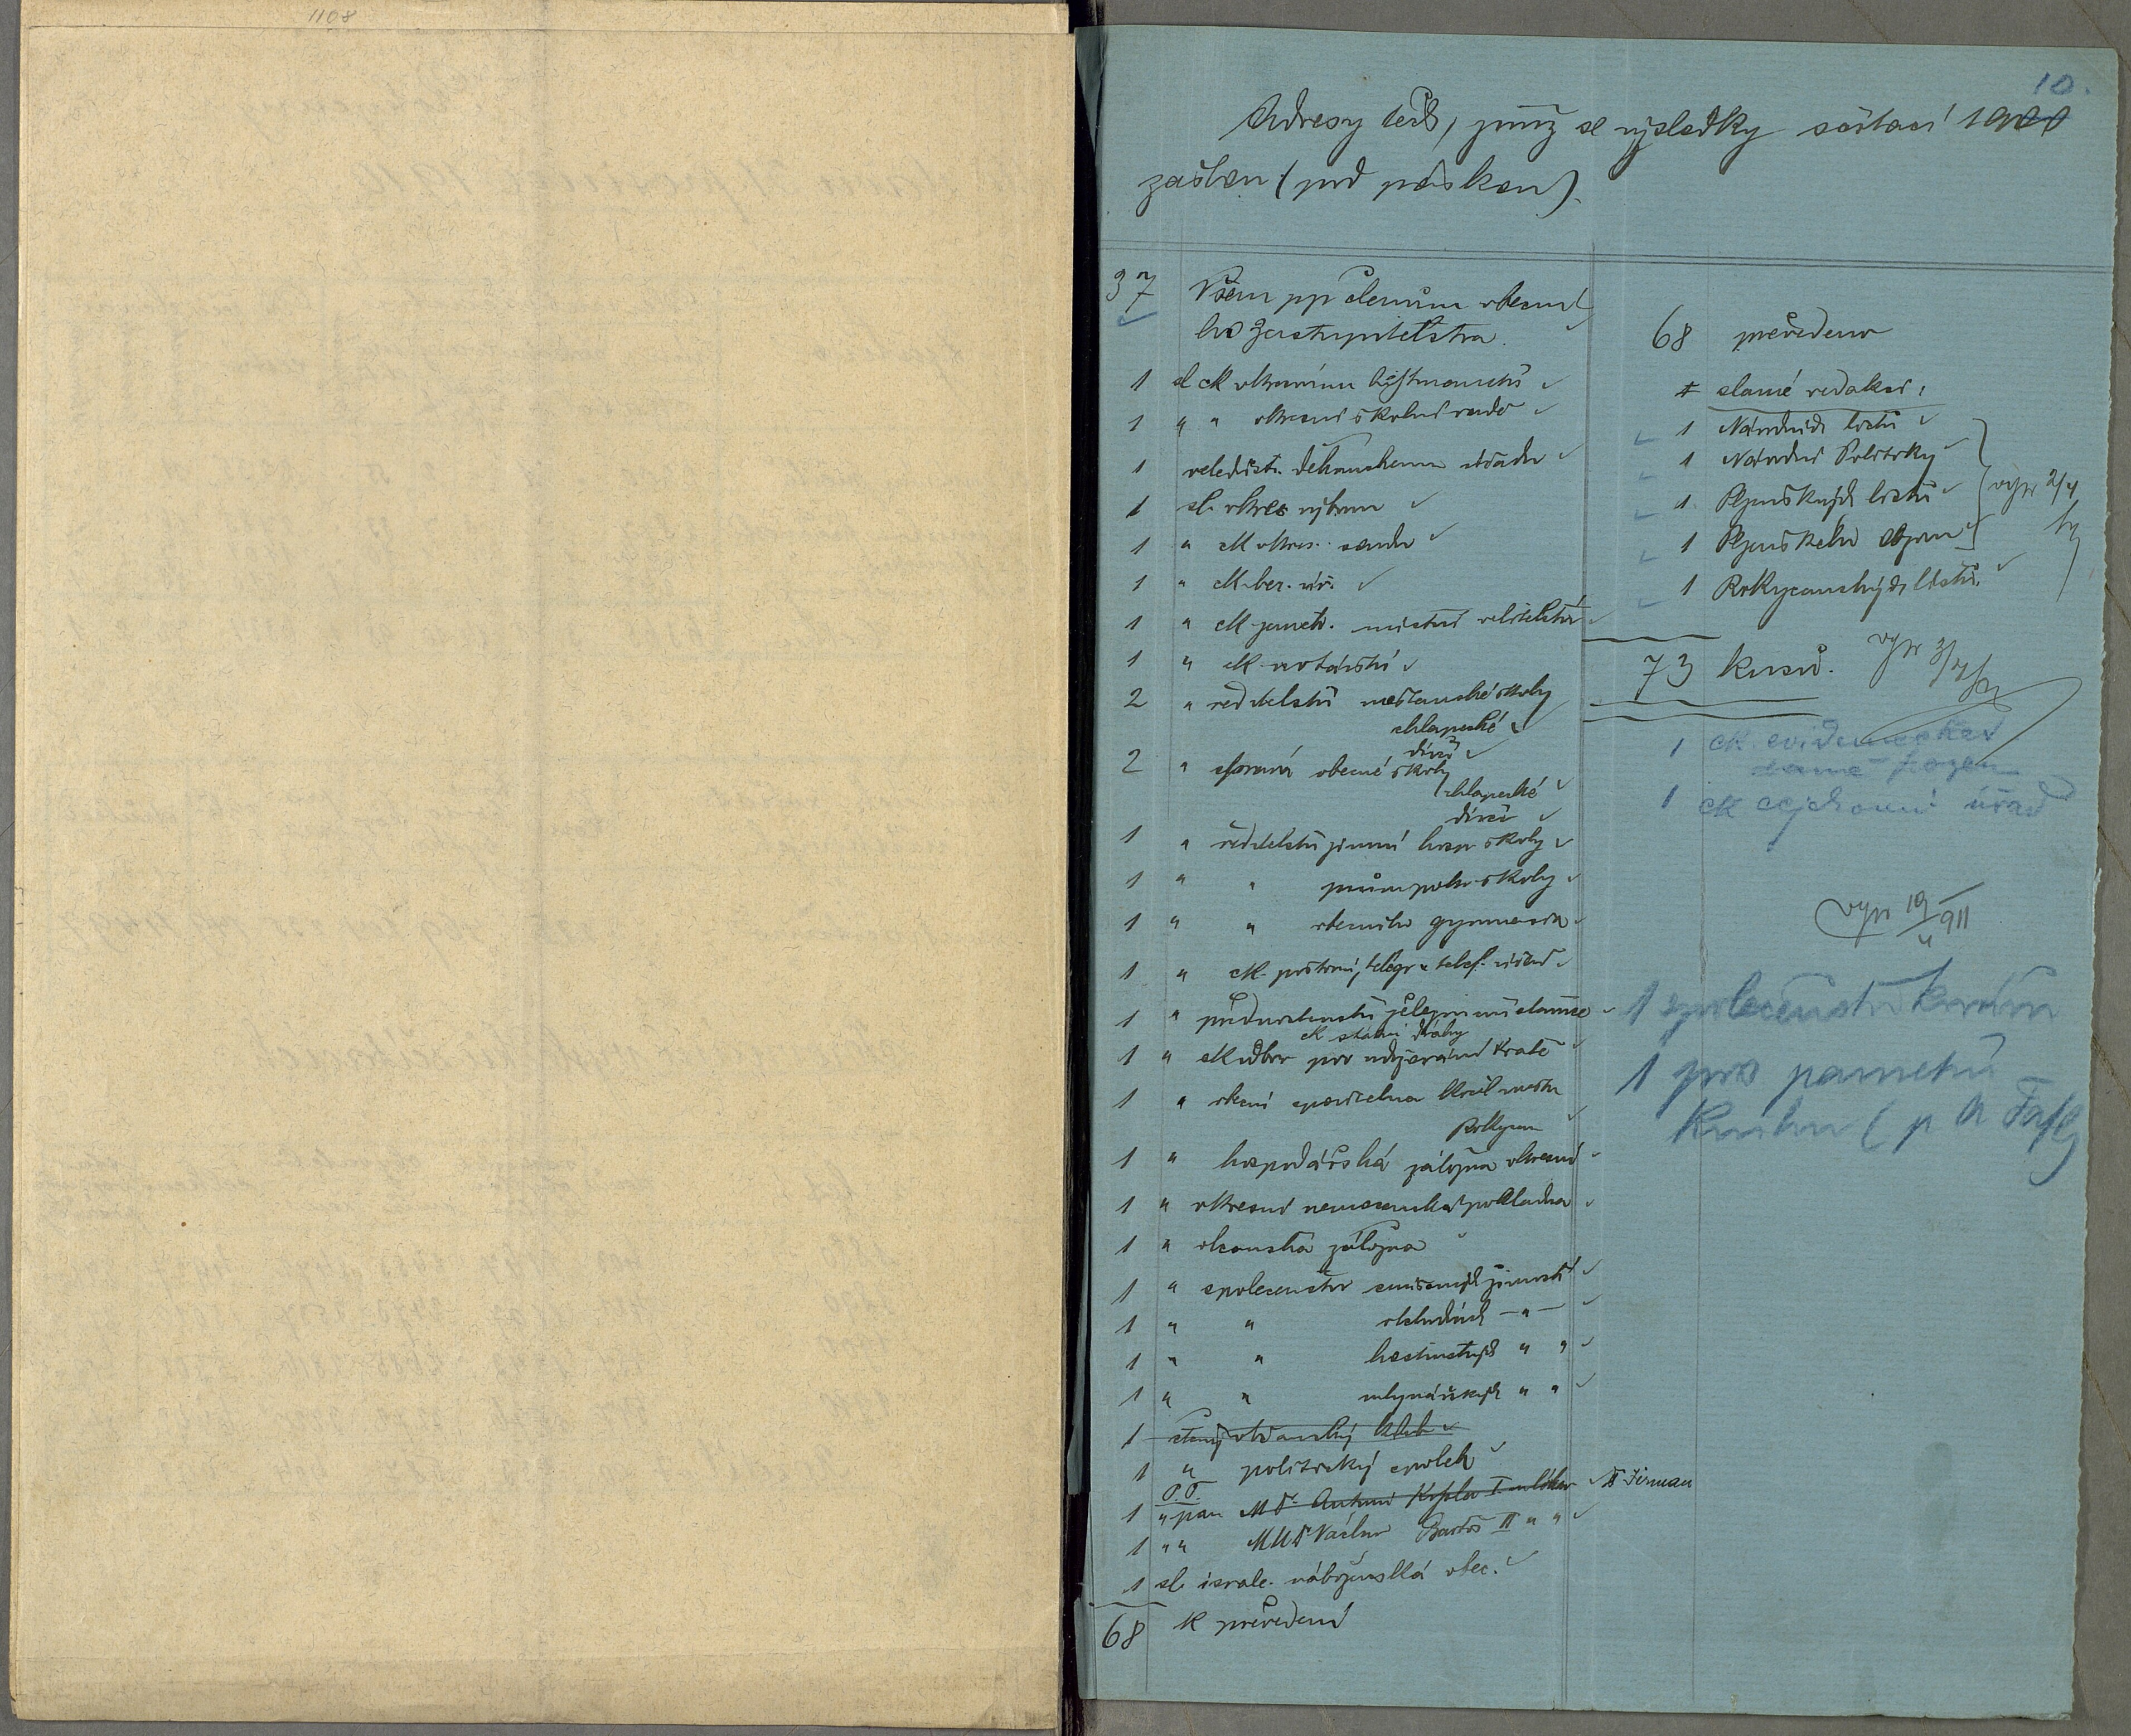 1108
10.
Adresy těch, jimž se výsledky sčítací 1900
zašlou (pod páskou).
37 Všem pp členům obecní
ho zastupitelstva.
1 sl ck okresnímu hejtmanství
1 " " okresní školní radě
1 veledůst. děkanskému úřadu
1 sl. okres výboru
1 " ck okres. soudu
1 " ck ber. úř.
1 " ck místní velitelství
1 " ck notářství
2 " ředitelství měšťanské školy
chlapecké
dívčí
2 " správa obecné školy
chlapecké
dívčí
1 " ředitelství zimní hosp školy
1 " " průmpokr školy
1 " " obecního gymnasia
1 " ck. poštovní, telegr a telef. úřad
1 " přednostenství železniční stanice
ck státní dráhy
1 " ck odbor pro udržování tratě
1 " obecní spořitelna král města
Rokycan
1 " hospodářská záložna okresní
1 " okresní nemocenská pokladna
1 " občanská záložna
1 " společenstvo smíšených živností
1 " " oděvních — " —
1 " " hostinských " "
1 " " mlynářských " "
1 slavný občanský klub
1 " politický spolek
P.T.
1 " pan MDr. Antonín I. měst. lékař II Jirman
1 " " MUDr Václav Bartoš II " "
1 sl. israel. náboženská obec.
68 k převedení
68 převedeno
slavné redakci:
1 Národních listů
1 Národní Politiky
1 Plzeňských listů
1 Plzeňského obzoru
1 Rokycanských listů.
vypr 2/4
73 kusů. vypr 3/4
1 ck. evidenčnímu
1 ck cejchovní úřad
vypr 19/4 911
1 společenstvo kovářů
1 pro pamětní
knihu (p